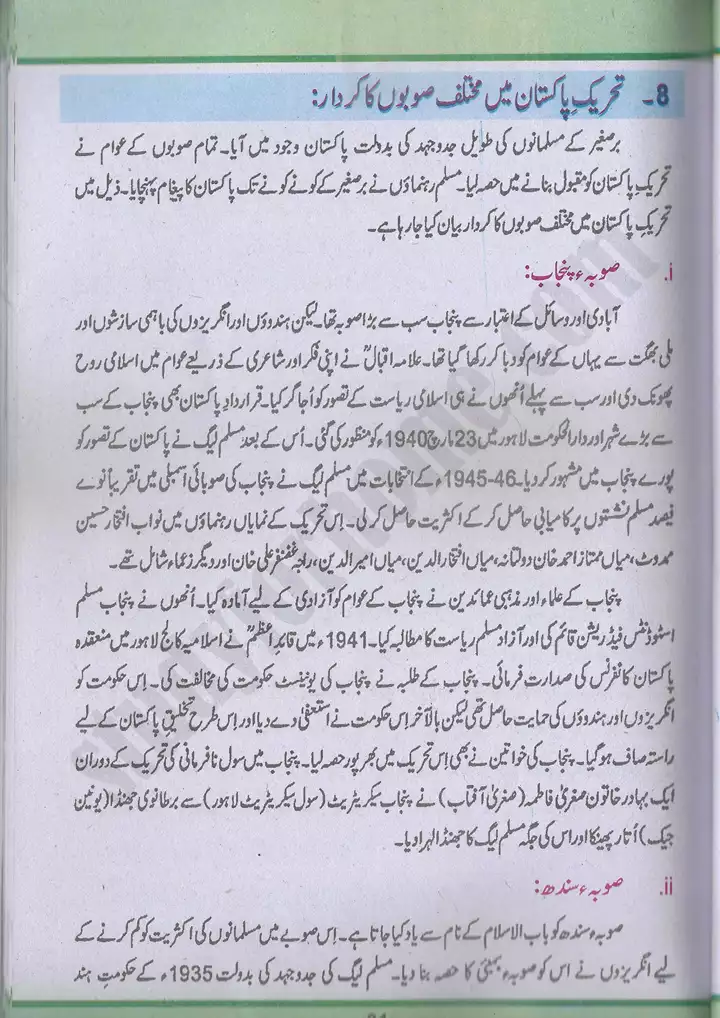 8۔ تحریکِ پاکستان میں مختلف صوبوں کا کردار:
برصغیر کے مسلمانوں کی طویل جدوجہد کی بدولت پاکستان وجود میں آیا۔ تمام صوبوں کے عوام نے
تحریکِ پاکستان کو مقبول بنانے میں حصہ لیا۔ مسلم رہنماؤں نے برصغیر کے کونے کونے تک پاکستان کا پیغام پہنچایا۔ ذیل میں
تحریکِ پاکستان میں مختلف صوبوں کا کردار بیان کیا جا رہا ہے۔
i. صوبہء پنجاب:
آبادی اور وسائل کے اعتبار سے پنجاب سب سے بڑا صوبہ تھا۔ لیکن ہندوؤں اور انگریزوں کی باہمی سازشوں اور
ملی بھگت سے یہاں کے عوام کو دبا کر رکھا گیا تھا۔ علامہ اقبالؒ نے اپنی فکر اور شاعری کے ذریعے عوام میں اسلامی روح
پھونک دی اور سب سے پہلے اُنھوں نے ہی اسلامی ریاست کے تصور کو اُجاگر کیا۔ قراردادِ پاکستان بھی پنجاب کے سب
سے بڑے شہر اور دارالحکومت لاہور میں 23 مارچ 1940ء کو منظور کی گئی۔ اُس کے بعد مسلم لیگ نے پاکستان کے تصور کو
پورے پنجاب میں مشہور کر دیا۔ 46-1945ء کے انتخابات میں مسلم لیگ نے پنجاب کی صوبائی اسمبلی میں تقریباً نوے
فیصد مسلم نشستوں پر کامیابی حاصل کر کے اکثریت حاصل کر لی۔ اِس تحریک کے نمایاں رہنماؤں میں نواب افتخار حسین
ممدوٹ، میاں ممتاز احمد خان دولتانہ، میاں افتخار الدین، میاں امیر الدین، راجہ غضنفر علی خان اور دیگر زعماء شامل تھے۔
پنجاب کے علماء اور مذہبی عمائدین نے پنجاب کے عوام کو آزادی کے لیے آمادہ کیا۔ اُنھوں نے پنجاب مسلم
اسٹوڈنٹس فیڈریشن قائم کی اور آزاد مسلم ریاست کا مطالبہ کیا۔ 1941ء میں قائدِ اعظمؒ نے اسلامیہ کالج لاہور میں منعقدہ
پاکستان کانفرنس کی صدارت فرمائی۔ پنجاب کے طلبہ نے پنجاب کی یونینسٹ حکومت کی مخالفت کی۔ اِس حکومت کو
انگریزوں اور ہندوؤں کی حمایت حاصل تھی لیکن بالآخر اِس حکومت نے استعفیٰ دے دیا اور اِس طرح تخلیقِ پاکستان کے لیے
راستہ صاف ہو گیا۔ پنجاب کی خواتین نے بھی اِس تحریک میں بھرپور حصہ لیا۔ پنجاب میں سول نافرمانی کی تحریک کے دوران
ایک بہادر خاتون صغریٰ فاطمہ (صغریٰ آفتاب) نے پنجاب سیکریٹریٹ (سول سیکریٹریٹ لاہور) سے برطانوی جھنڈا (یونین
جیک) اُتار پھینکا اور اس کی جگہ مسلم لیگ کا جھنڈا لہرا دیا۔
ii. صوبہء سندھ:
صوبہء سندھ کو باب الاسلام کے نام سے یاد کیا جاتا ہے۔ اِس صوبے میں مسلمانوں کی اکثریت کو کم کرنے کے
لیے انگریزوں نے اس کو صوبہء بمبئی کا حصہ بنا دیا۔ مسلم لیگ کی جدوجہد کی بدولت 1935ء کے حکومتِ ہند